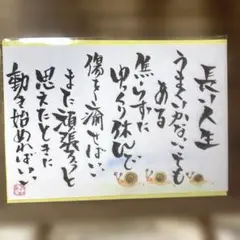 長い人生
うまくいかない日も
ある
焦らずに
ゆっくり休んで
傷を癒せばいい
また頑張ろうと
思えたときに
動き始めればいい